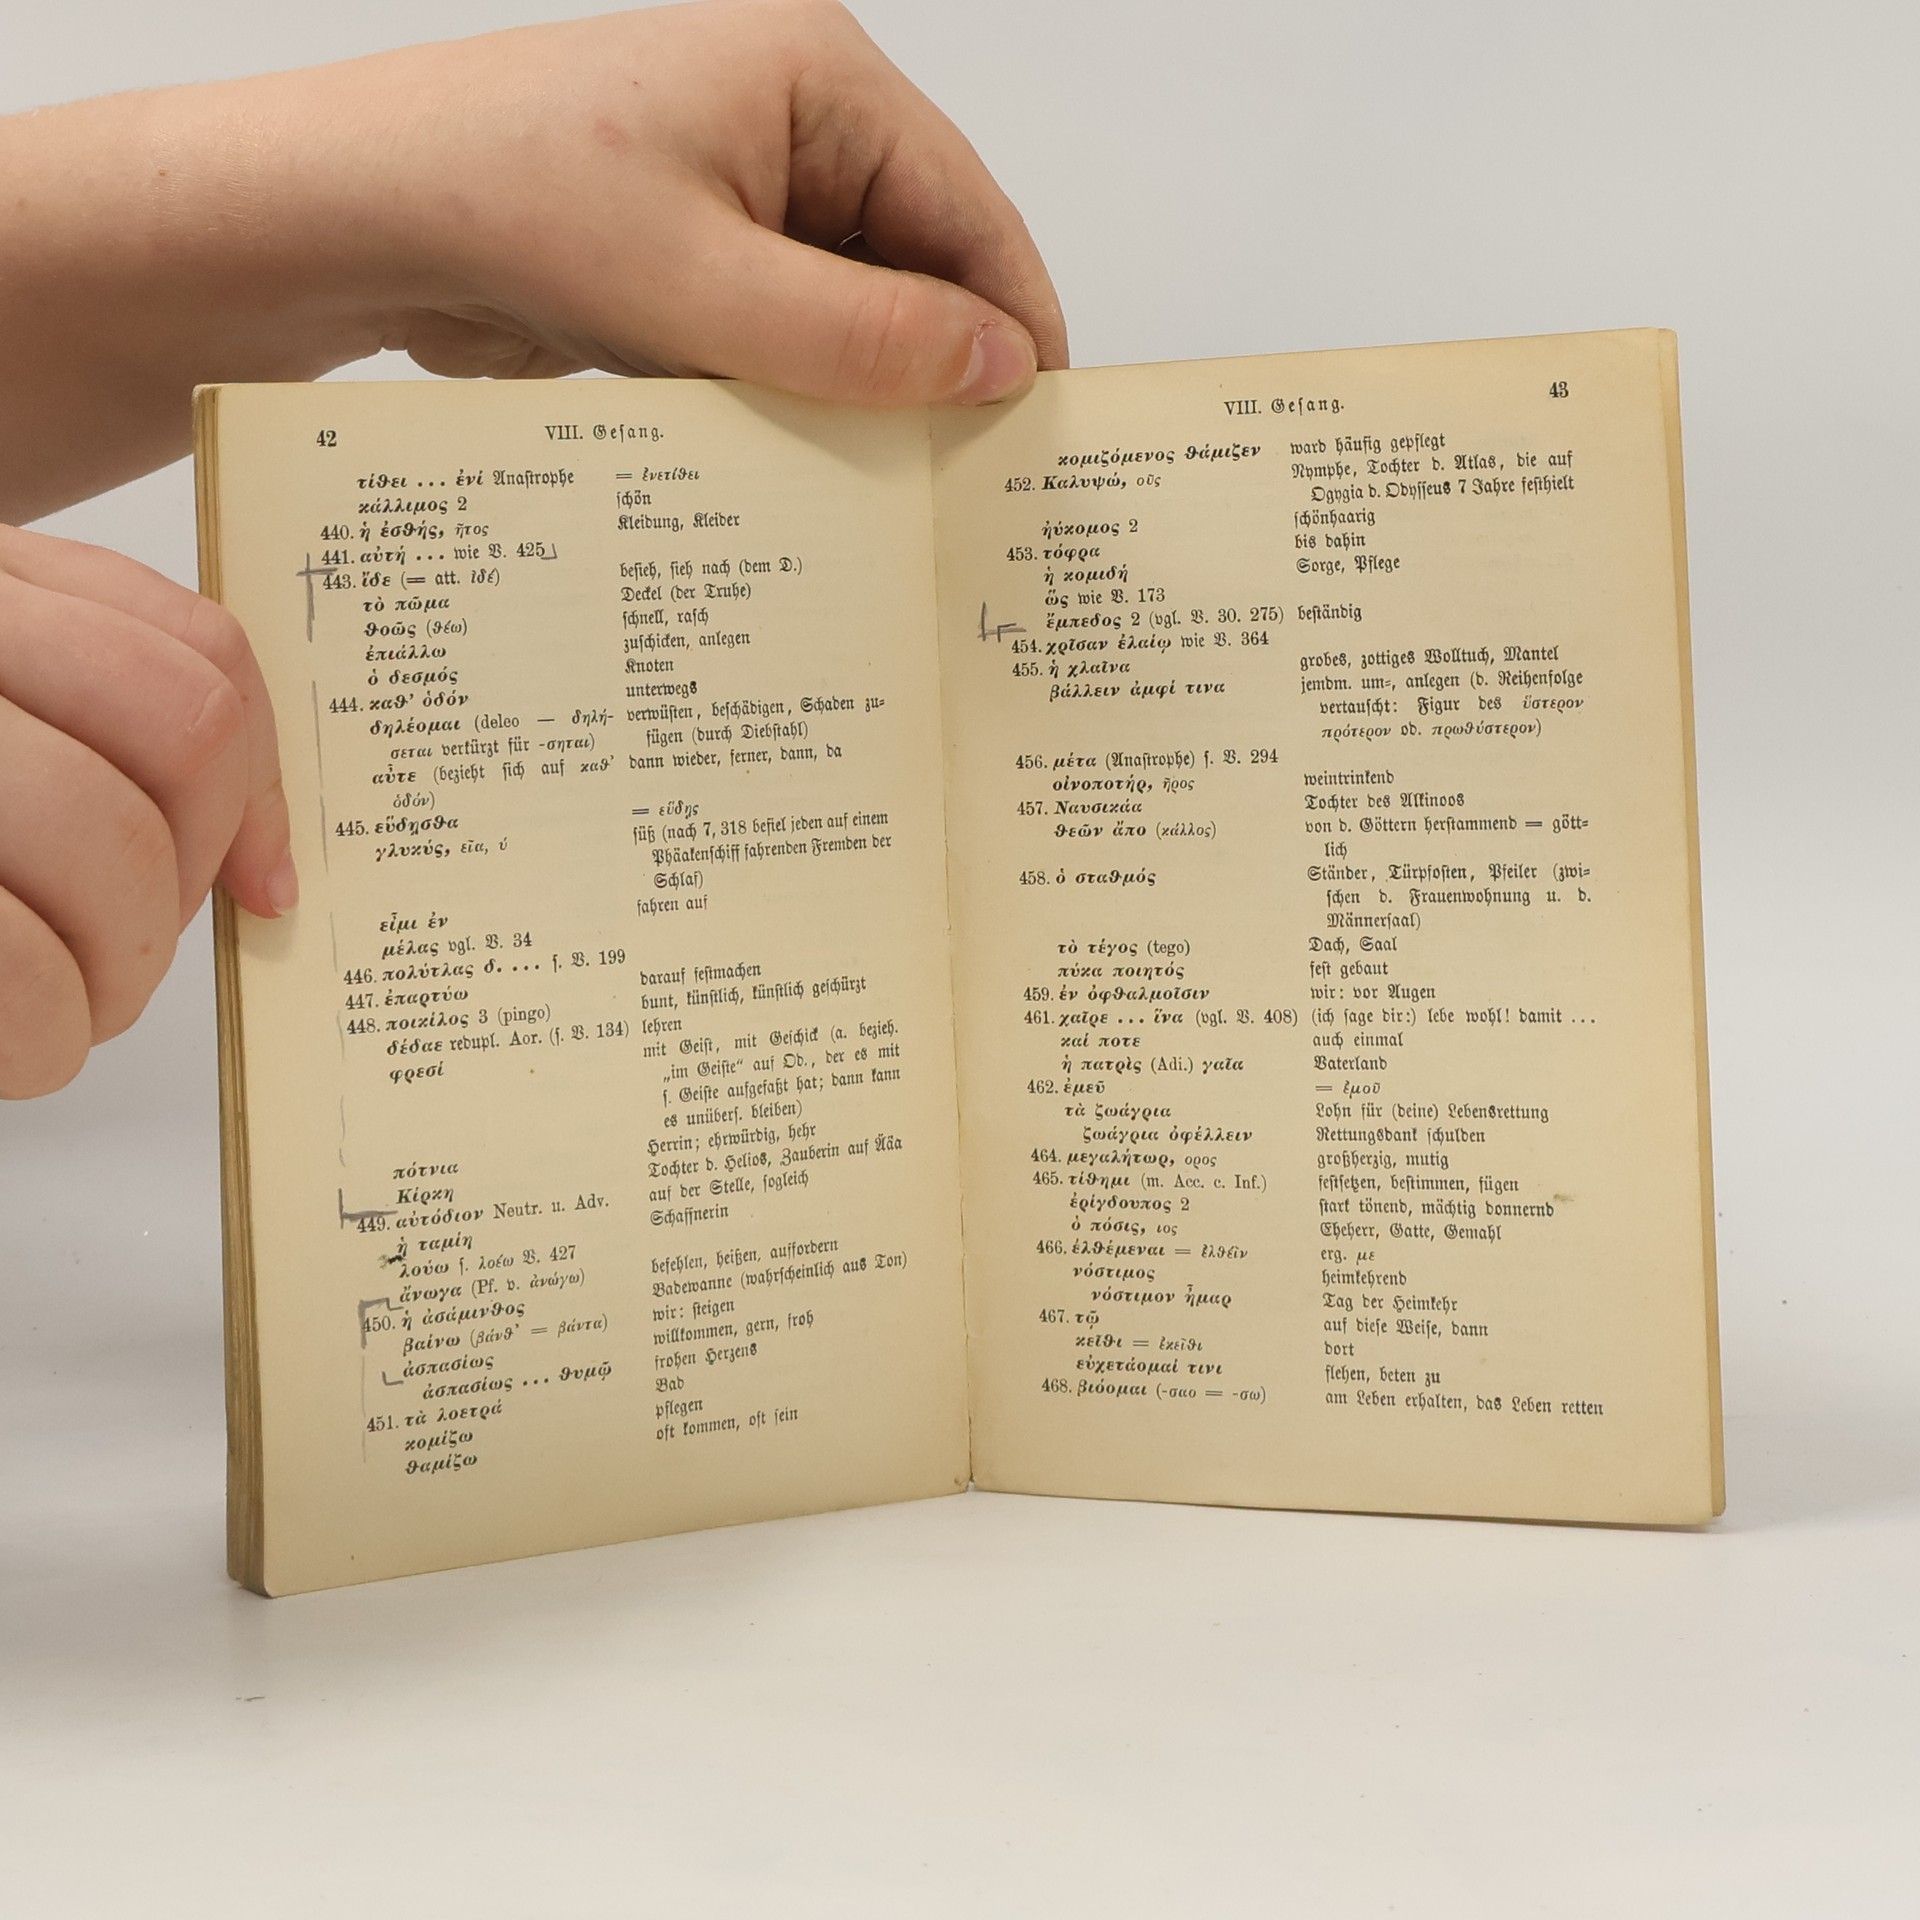 42
VIII. Geſang.
τίθει ... ἐνί Anaſtrophe = ἐνετίθει
κάλλιμος 2 ſchön
440. ἡ ἐσθής, ῆτος Kleidung, Kleider
441. αὐτή ... wie V. 425
443. ἴδε (= att. ἰδέ) beſieh, ſieh nach (dem D.)
τὸ πῶμα Deckel (der Truhe)
θοῶς (θέω) ſchnell, raſch
ἐπιάλλω zuſchicken, anlegen
ὁ δεσμός Knoten
444. καθ' ὁδόν unterwegs
δηλέομαι (deleo — δηλή- verwüſten, beſchädigen, Schaden zu-
σεται verkürzt für -σηται) fügen (durch Diebſtahl)
αὖτε (bezieht ſich auf καθ' dann wieder, ferner, dann, da
ὁδόν)
445. εὕδησθα = εὕδῃς
γλυκύς, εῖα, ύ ſüß (nach 7, 318 befiel jeden auf einem
Phäakenſchiff fahrenden Fremden der
Schlaf)
εἶμι ἐν fahren auf
μέλας vgl. V. 34
446. πολύτλας δ. ... ſ. V. 199
447. ἐπαρτύω darauf feſtmachen
448. ποικίλος 3 (pingo) bunt, künſtlich, künſtlich geſchürzt
δέδαε redupl. Aor. (ſ. V. 134) lehren
φρεσί mit Geiſt, mit Geſchick (a. bezieh.
„im Geiſte“ auf Od., der es mit
ſ. Geiſte aufgefaßt hat; dann kann
es unüberſ. bleiben)
πότνια Herrin; ehrwürdig, hehr
Κίρκη Tochter d. Helios, Zauberin auf Ääa
449. αὐτόδιον Neutr. u. Adv. auf der Stelle, ſogleich
ἡ ταμίη Schaffnerin
λούω ſ. λοέω V. 427
ἄνωγα (Pf. v. ἀνώγω) befehlen, heißen, auffordern
450. ἡ ἀσάμινθος Badewanne (wahrſcheinlich aus Ton)
βαίνω (βάνθ' = βάντα) wir: ſteigen
ἀσπασίως willkommen, gern, froh
ἀσπασίως ... θυμῷ frohen Herzens
451. τὰ λοετρά Bad
κομίζω pflegen
θαμίζω oft kommen, oft ſein
VIII. Geſang.
43
κομιζόμενος θάμιζεν ward häufig gepflegt
452. Καλυψώ, οῦς Nymphe, Tochter d. Atlas, die auf
Ogygia d. Odyſſeus 7 Jahre feſthielt
ἠύκομος 2 ſchönhaarig
453. τόφρα bis dahin
ἡ κομιδή Sorge, Pflege
ὥς wie V. 173
ἔμπεδος 2 (vgl. V. 30. 275) beſtändig
454. χρῖσαν ἐλαίῳ wie V. 364
455. ἡ χλαῖνα grobes, zottiges Wolltuch, Mantel
βάλλειν ἀμφί τινα jemdm. um-, anlegen (d. Reihenfolge
vertauſcht: Figur des ὕστερον
πρότερον od. πρωθύστερον)
456. μέτα (Anaſtrophe) ſ. V. 294
οἰνοποτήρ, ῆρος weintrinkend
457. Ναυσικάα Tochter des Alkinoos
θεῶν ἄπο (κάλλος) von d. Göttern herſtammend = gött-
lich
458. ὁ σταθμός Ständer, Türpfoſten, Pfeiler (zwi-
ſchen d. Frauenwohnung u. d.
Männerſaal)
τὸ τέγος (tego) Dach, Saal
πύκα ποιητός feſt gebaut
459. ἐν ὀφθαλμοῖσιν wir: vor Augen
461. χαῖρε ... ἵνα (vgl. V. 408) (ich ſage dir:) lebe wohl! damit ...
καί ποτε auch einmal
ἡ πατρὶς (Adi.) γαῖα Vaterland
462. ἐμεῦ = ἐμοῦ
τὰ ζωάγρια Lohn für (deine) Lebensrettung
ζωάγρια ὀφέλλειν Rettungsdank ſchulden
464. μεγαλήτωρ, ορος großherzig, mutig
465. τίθημι (m. Acc. c. Inf.) feſtſetzen, beſtimmen, fügen
ἐρίγδουπος 2 ſtark tönend, mächtig donnernd
ὁ πόσις, ιος Eheherr, Gatte, Gemahl
466. ἐλθέμεναι = ἐλθεῖν erg. με
νόστιμος heimkehrend
νόστιμον ἦμαρ Tag der Heimkehr
467. τῷ auf dieſe Weiſe, dann
κεῖθι = ἐκεῖθι dort
εὐχετάομαί τινι flehen, beten zu
468. βιόομαι (-σαο = -σω) am Leben erhalten, das Leben retten